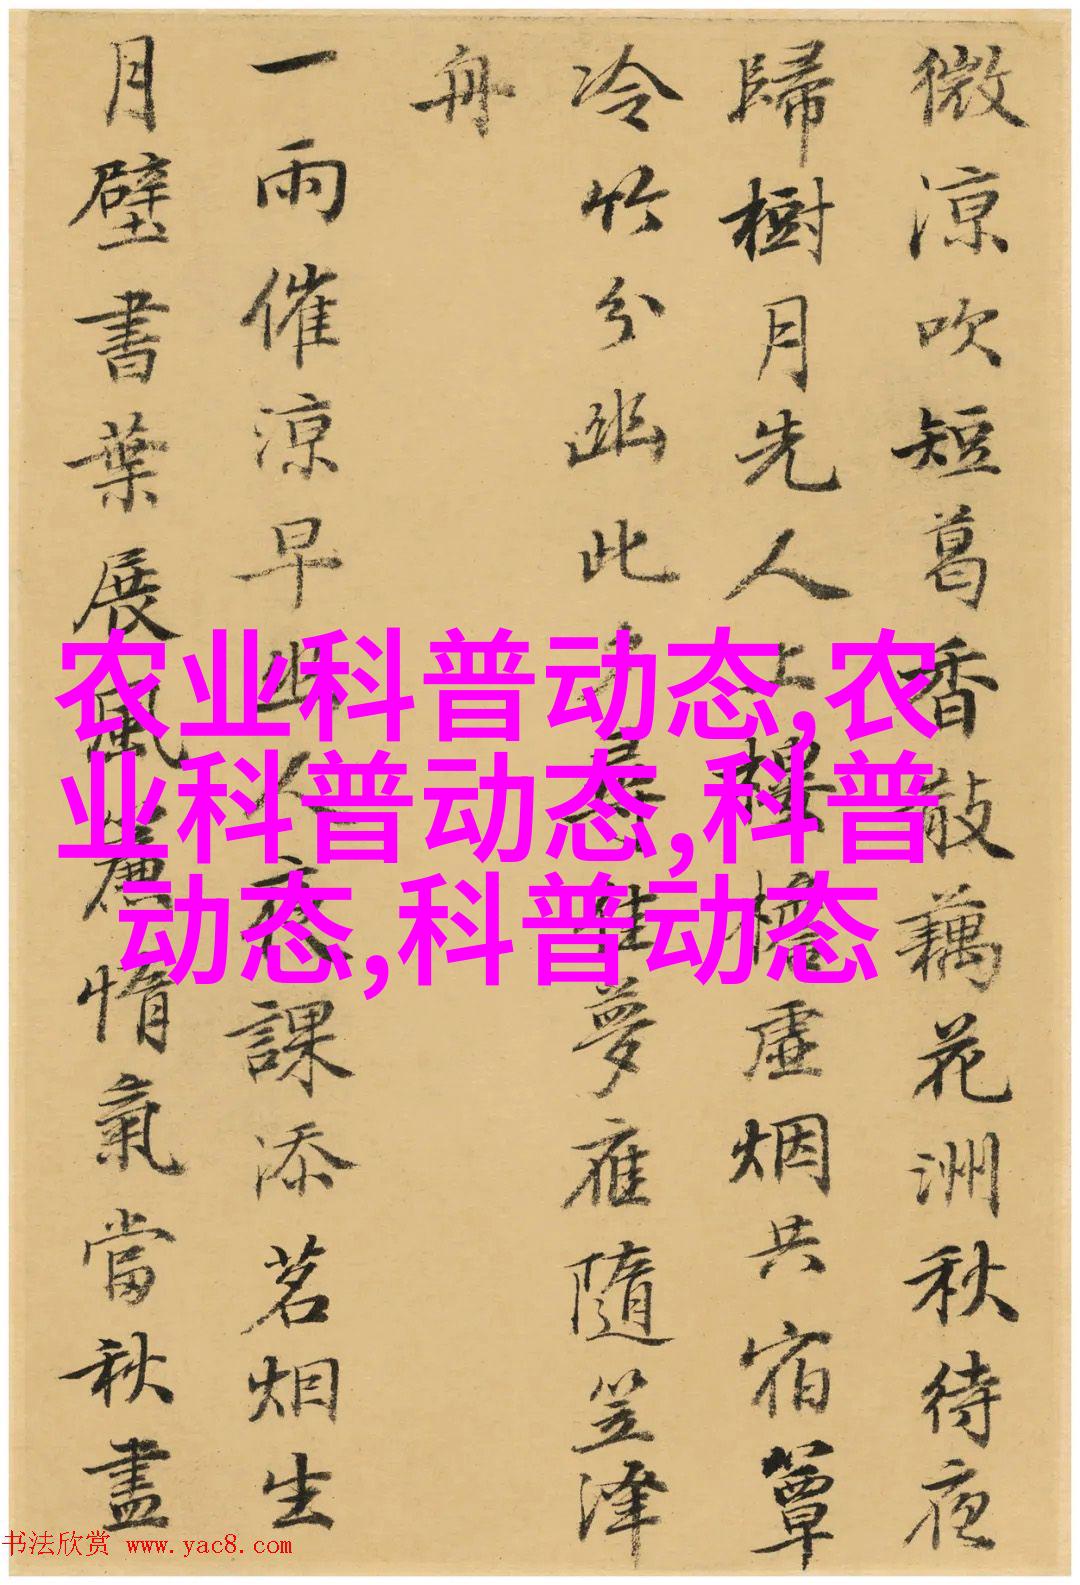 微涼吹短葛香散藕花洲秋待夜
歸樹月先人上樓檐虛烟共宿簟
冷竹分幽此夕尋佳夢應隨笠澤
舟
一雨催涼早幽人夜課添茗烟生
月壁書葉展風簾惰氣當秋盡
农业科普动态,农
业科普动态,科普
动态,科普动态
书法欣赏 www.yac8.com